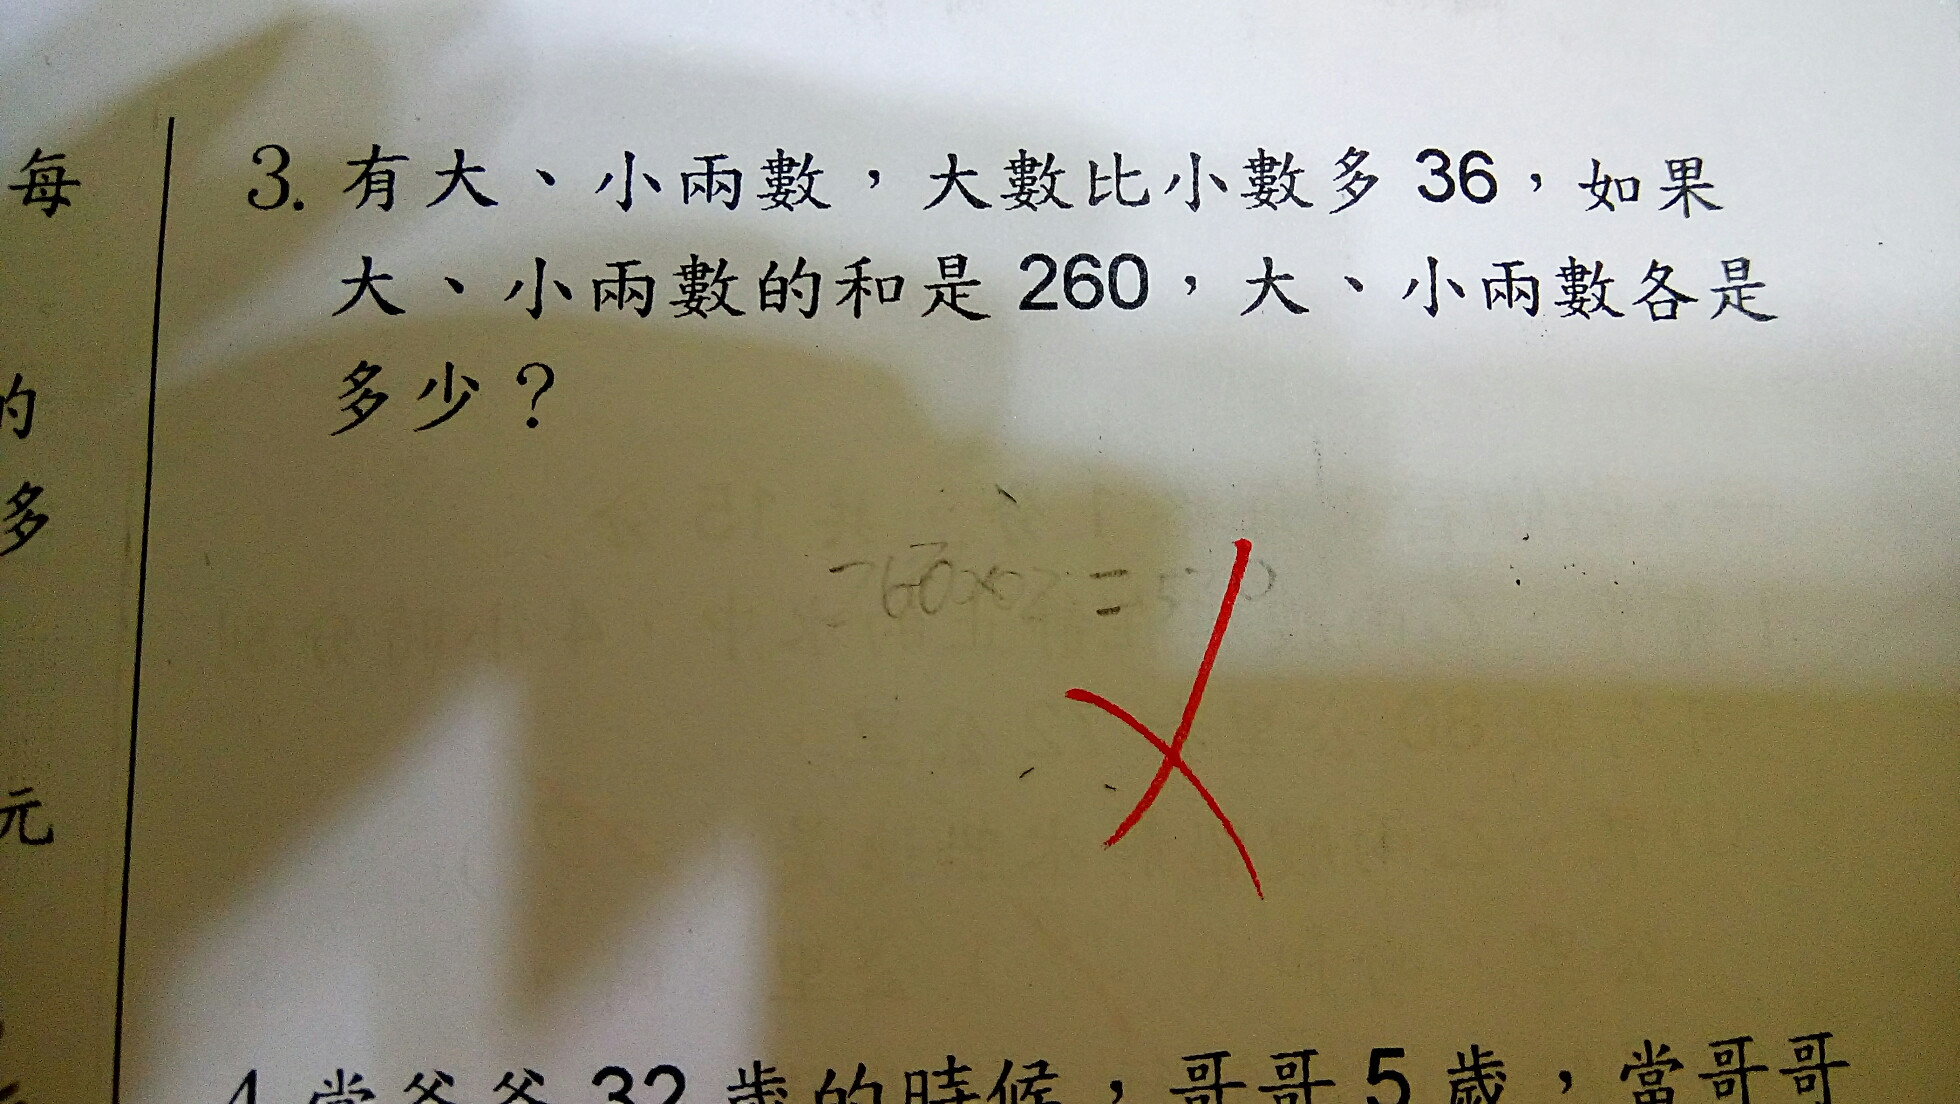 每
3. 有大、小兩數，大數比小數多 36，如果
大、小兩數的和是 260，大、小兩數各是
多少？
的
多
元
4. 當爸爸 32 歲的時候，哥哥 5 歲，當哥哥